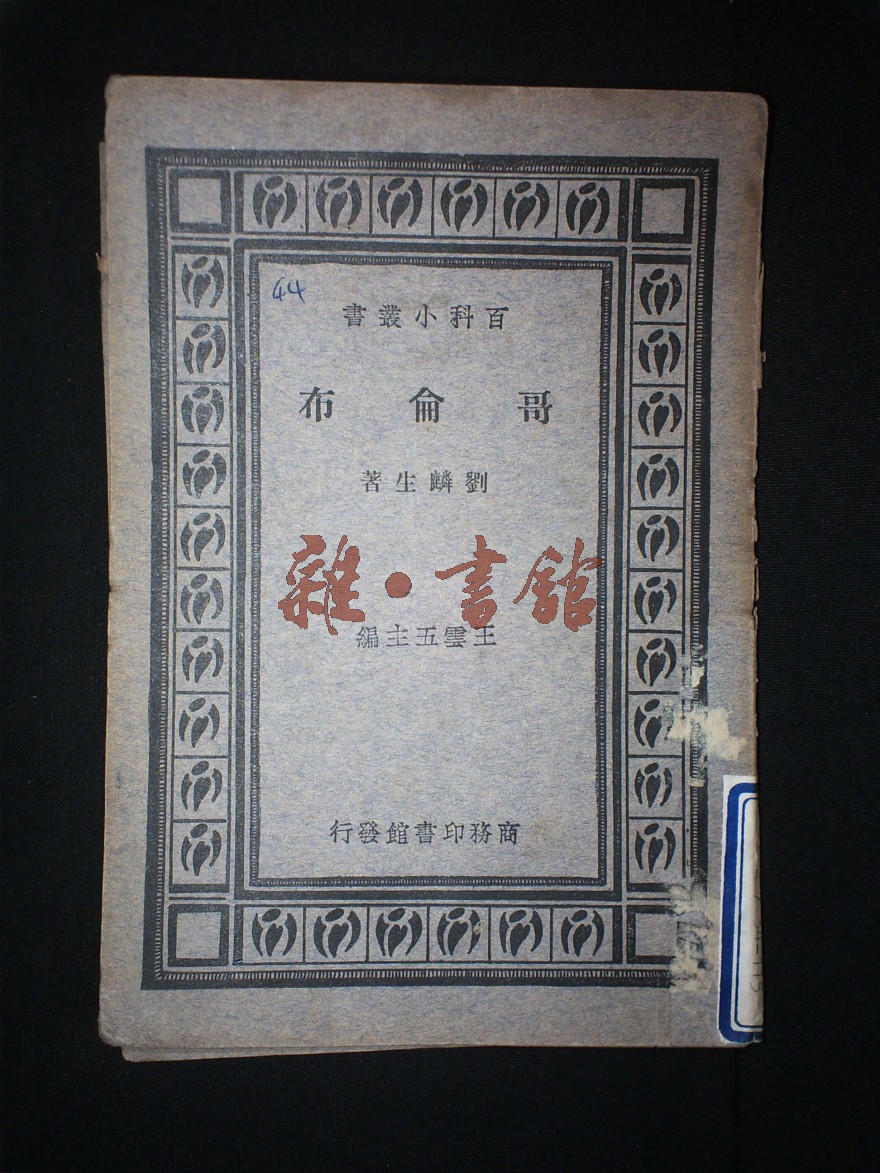 44
百科小叢書
哥侖布
劉麟生著
雜·書館
王雲五主編
商務印書館發行